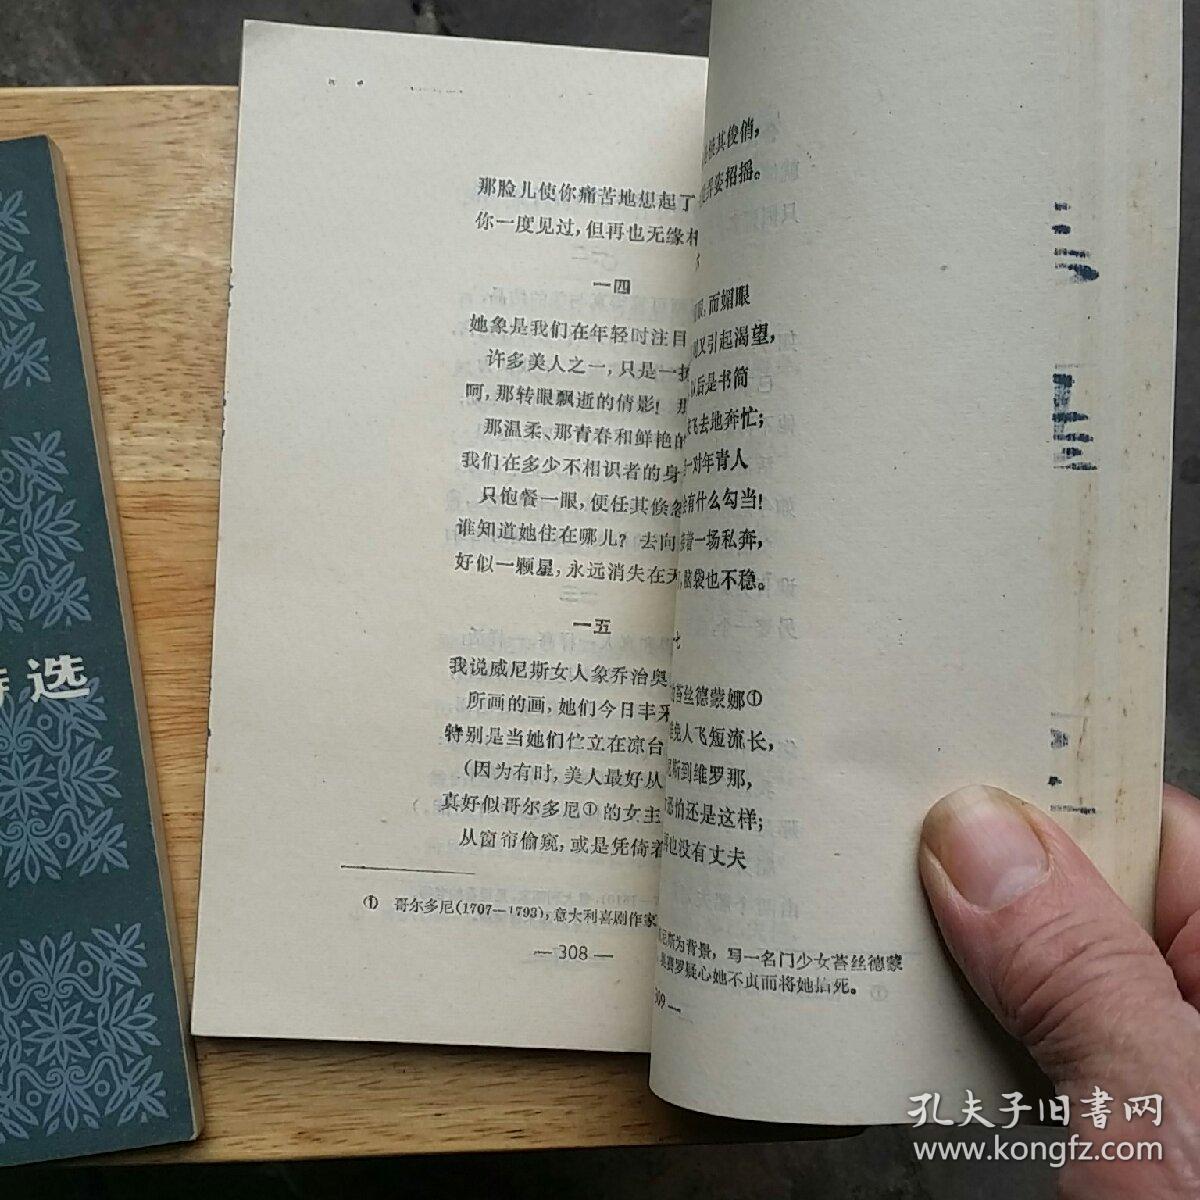 那脸儿使你痛苦地想起了
你一度见过，但再也无缘
一四
她象是我们在年轻时注目
许多美人之一，只是一
呵，那转眼飘逝的倩影！那
那温柔、那青春和鲜艳
我们在多少不相识者的身
只饱餐一眼，便任其倏
谁知道她住在哪儿？去向
好似一颗星，永远消失在
一五
我说威尼斯女人象乔治奥
所画的画，她们今日丰采
特别是当她们伫立在凉台
（因为有时，美人最好从
真好似哥尔多尼①的女主
从窗帘偷窥，或是凭倚着
① 哥尔多尼(1707—1793)，意大利喜剧作家
— 308 —
其俊俏，
姿招摇。
而媚眼
又引起渴望，
后是书简
飞去地奔忙；
一对年青人
有什么勾当！
着一场私奔，
脑袋也不稳。
七
苔丝德蒙娜①
人飞短流长，
斯到维罗那，
恐怕还是这样；
也没有丈夫
尼斯为背景，写一名门少女苔丝德蒙
赛罗疑心她不贞而将她掐死。
309 —
诗选
孔夫子旧书网
www.kongfz.com